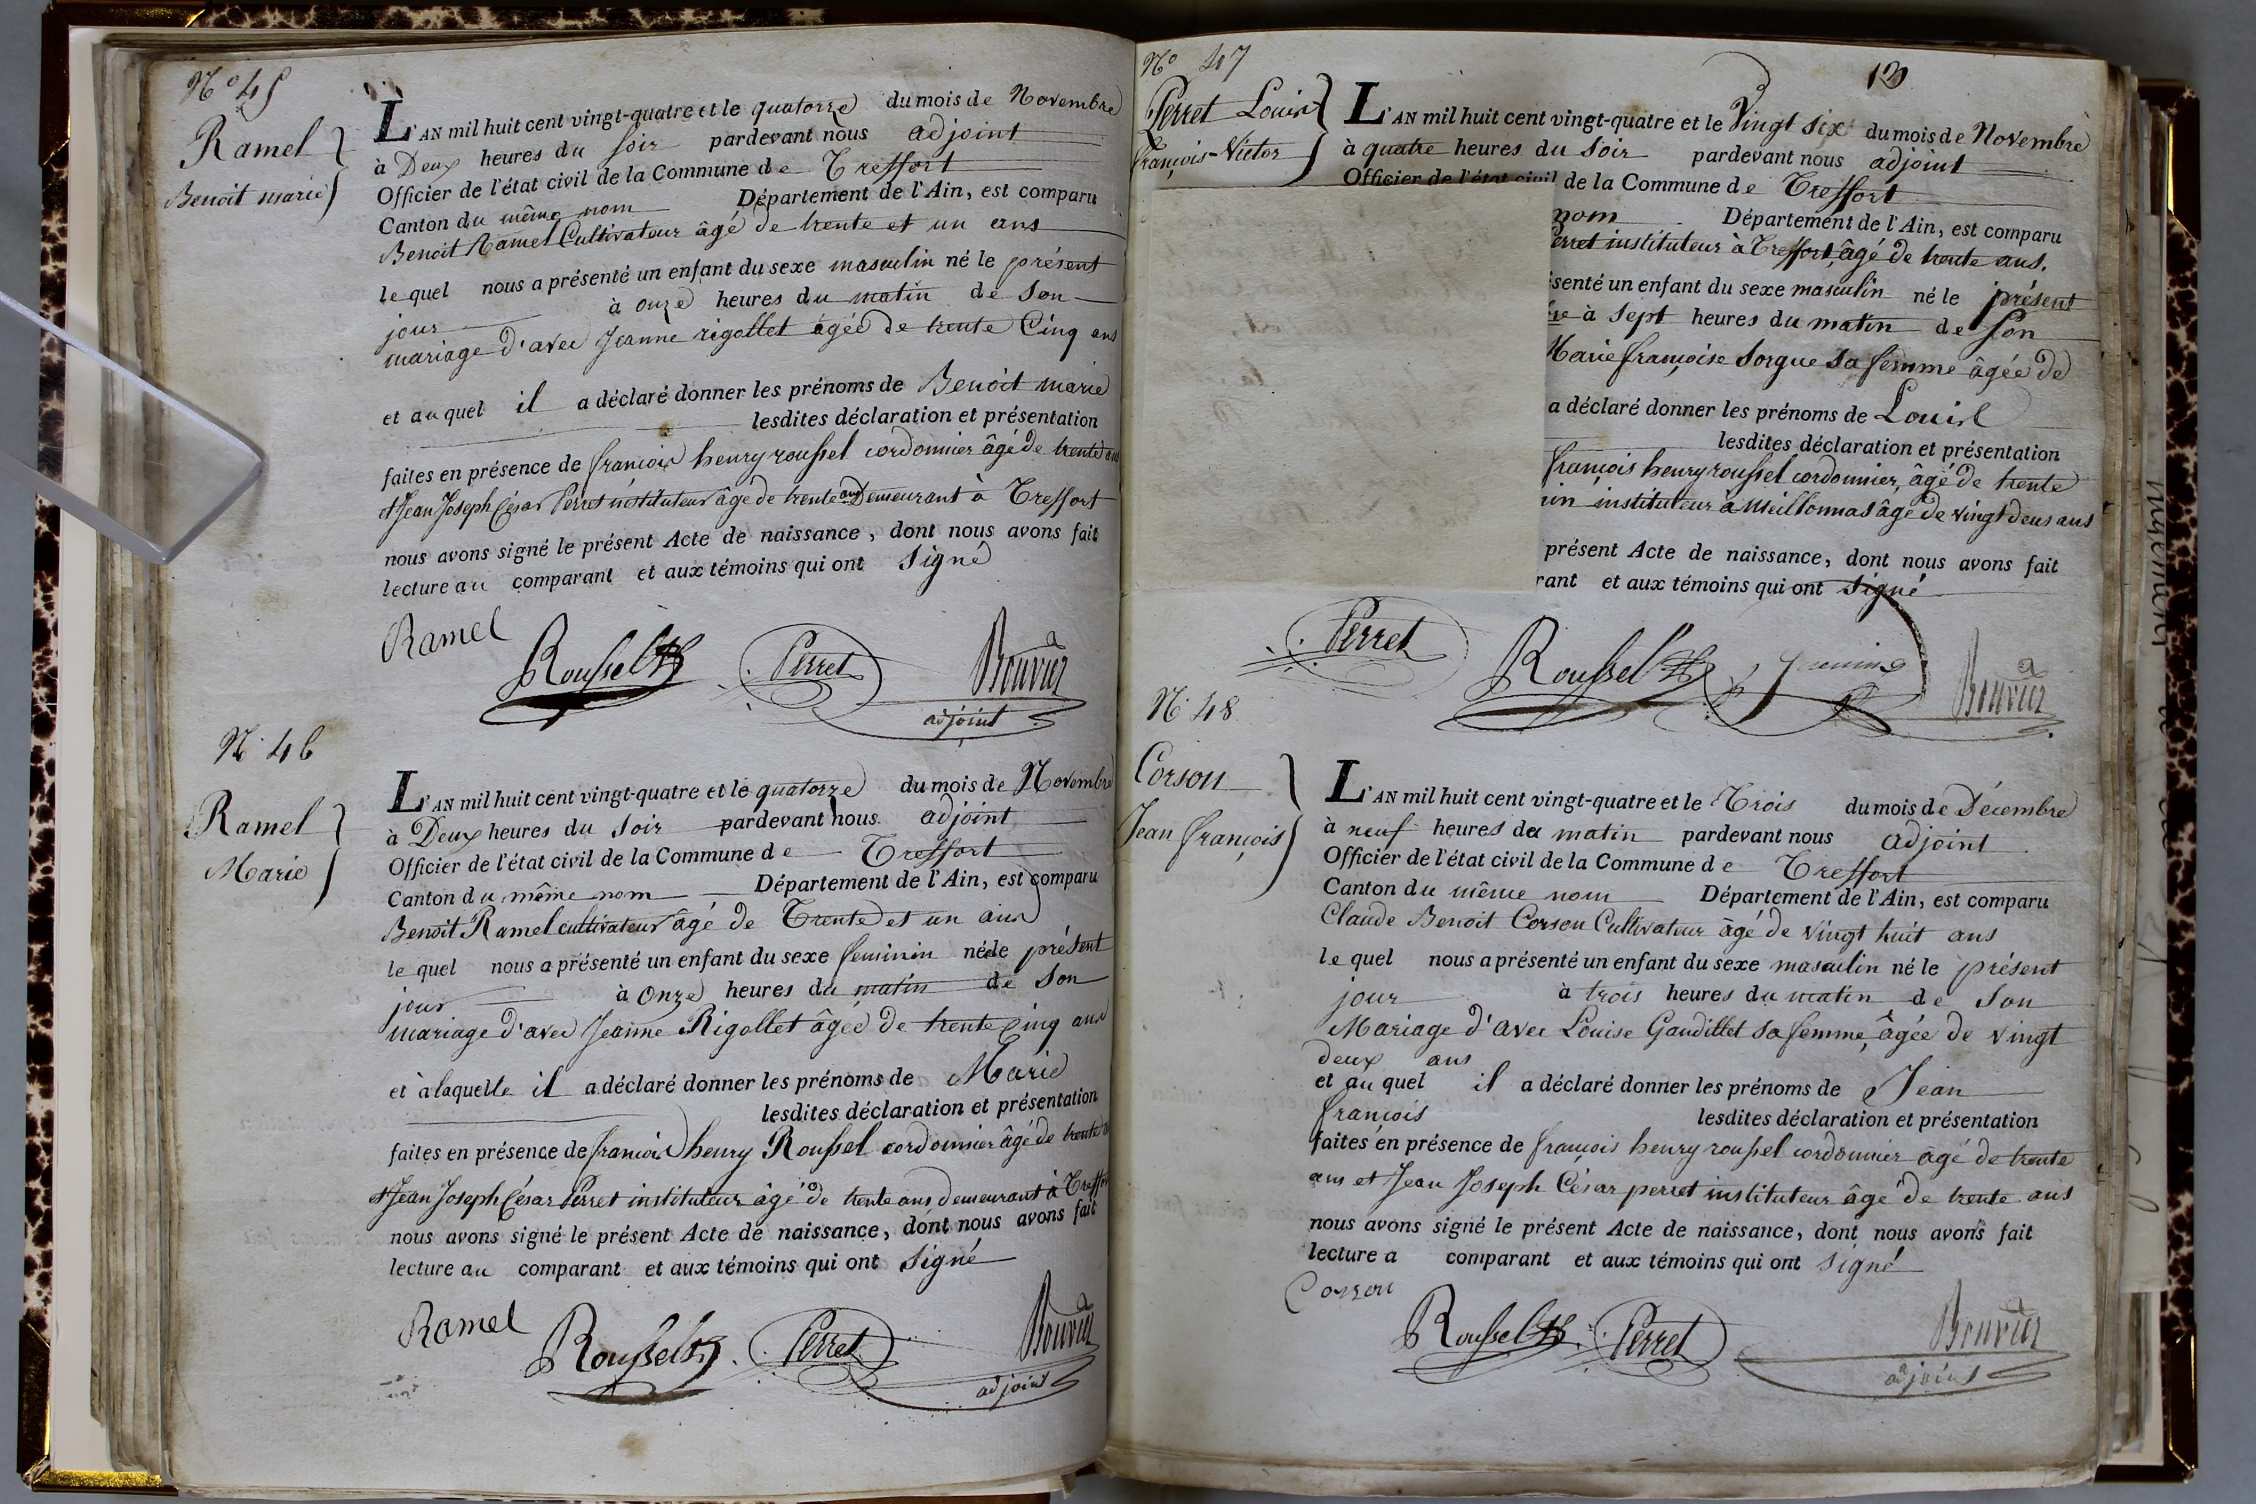 N.º 45
Ramel
Benoit marie
L'AN mil huit cent vingt-quatre et le quatorze du mois de Novembre
à Deux heures du soir pardevant nous adjoint
Officier de l'état civil de la Commune de Treffort
Canton du même nom Département de l'Ain, est comparu
Benoit Ramel Cultivateur âgé de trente et un ans
lequel nous a présenté un enfant du sexe masculin né le présent
jour à onze heures du matin de son
mariage d'avec Jeanne rigollet âgée de trente Cinq ans
et auquel il a déclaré donner les prénoms de Benoit marie
lesdites déclaration et présentation
faites en présence de françois henry roussel cordonnier âgé de trente ans
et Jean Joseph César Perret instituteur âgé de trente ans Demeurant à Treffort
nous avons signé le présent Acte de naissance, dont nous avons fait
lecture au comparant et aux témoins qui ont signé
Ramel
Roussel
Perret
Bouvier
adjoint
N.º 46
Ramel
Marie
L'AN mil huit cent vingt-quatre et le quatorze du mois de Novembre
à Deux heures du soir pardevant nous adjoint
Officier de l'état civil de la Commune de Treffort
Canton du même nom Département de l'Ain, est comparu
Benoit Ramel cultivateur âgé de Trente et un ans
lequel nous a présenté un enfant du sexe feminin née le présent
jour à onze heures du matin de son
mariage d'avec Jeanne Rigollet âgée de trente Cinq ans
et à laquelle il a déclaré donner les prénoms de Marie
lesdites déclaration et présentation
faites en présence de françois henry Roussel cordonnier âgé de trente
et Jean Joseph César Perret instituteur âgé de trente ans demeurant à Treffort
nous avons signé le présent Acte de naissance, dont nous avons fait
lecture au comparant et aux témoins qui ont signé
Ramel
Roussel
Perret
Bouvier
adjoint
Nº 47
13
Perret Louis
françois-Victor
L'AN mil huit cent vingt-quatre et le Vingt six du mois de Novembre
à quatre heures du soir pardevant nous adjoint
Officier de l'état civil de la Commune de Treffort
nom Département de l'Ain, est comparu
Perret instituteur à Treffort, âgé de trente ans.
ésenté un enfant du sexe masculin né le présent
bre à sept heures du matin de son
Marie françoise Sorgue sa femme âgée de
a déclaré donner les prénoms de Louis
lesdites déclaration et présentation
françois henry roussel cordonnier, âgé de trente
nin instituteur à Meillonnas âgé de vingt deux ans
présent Acte de naissance, dont nous avons fait
rant et aux témoins qui ont signé
Perret
Roussel
Bouvier
N.º 48
Corson
Jean françois
L'AN mil huit cent vingt-quatre et le Trois du mois de Décembre
à neuf heures du matin pardevant nous adjoint
Officier de l'état civil de la Commune de Treffort
Canton du même nom Département de l'Ain, est comparu
Claude Benoit Corson Cultivateur âgé de vingt huit ans
lequel nous a présenté un enfant du sexe masculin né le présent
jour à trois heures du matin de son
Mariage d'avec Louise Gaudillet sa femme, âgée de vingt
deux ans
et auquel il a déclaré donner les prénoms de Jean
françois lesdites déclaration et présentation
faites en présence de françois henry roussel cordonnier âgé de trente
ans et Jean Joseph César perret instituteur âgé de trente ans
nous avons signé le présent Acte de naissance, dont nous avons fait
lecture a comparant et aux témoins qui ont signé
Corson
Roussel
Perret
Bouvier
adjoint